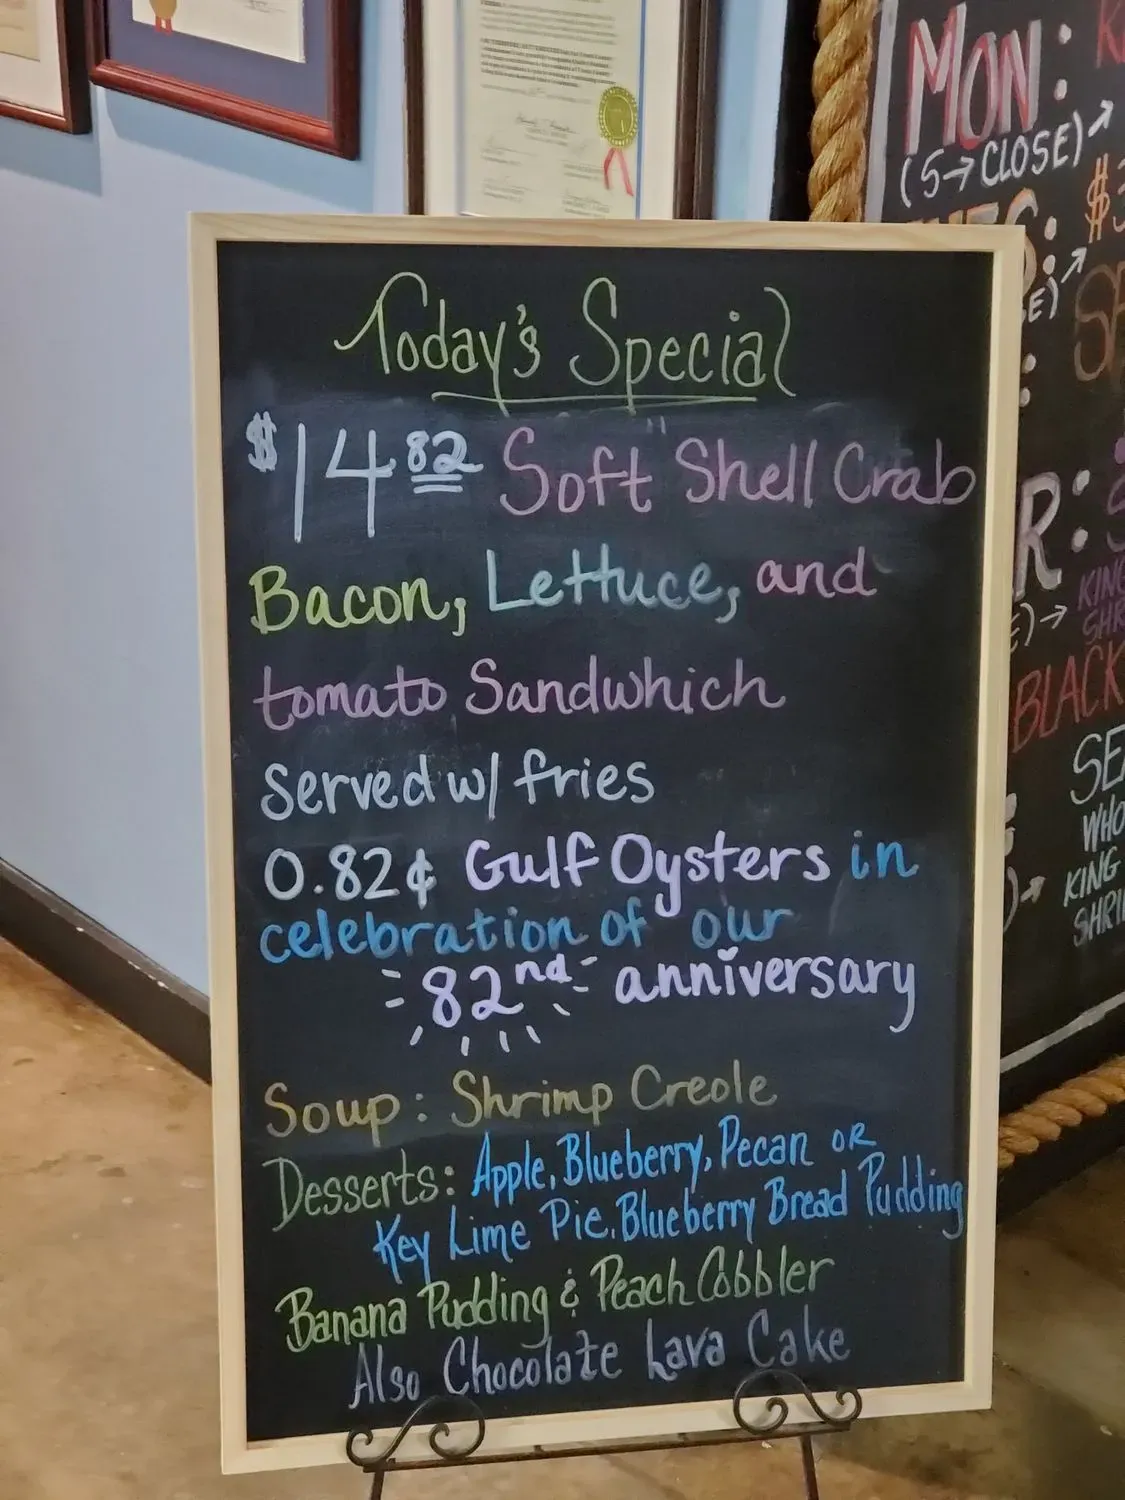 Today's Special
$14.82 Soft Shell Crab
Bacon, Lettuce, and
tomato Sandwhich
Served w/ fries
0.82¢ Gulf Oysters in
celebration of our
82nd anniversary
Soup: Shrimp Creole
Desserts: Apple, Blueberry, Pecan or
Key Lime Pie, Blueberry Bread Pudding
Banana Pudding & Peach Cobbler
Also Chocolate Lava Cake
MON:
(5→CLOSE)→
$
R:
KING
SHR
BLACK
SE
WHO
KING
SHRI